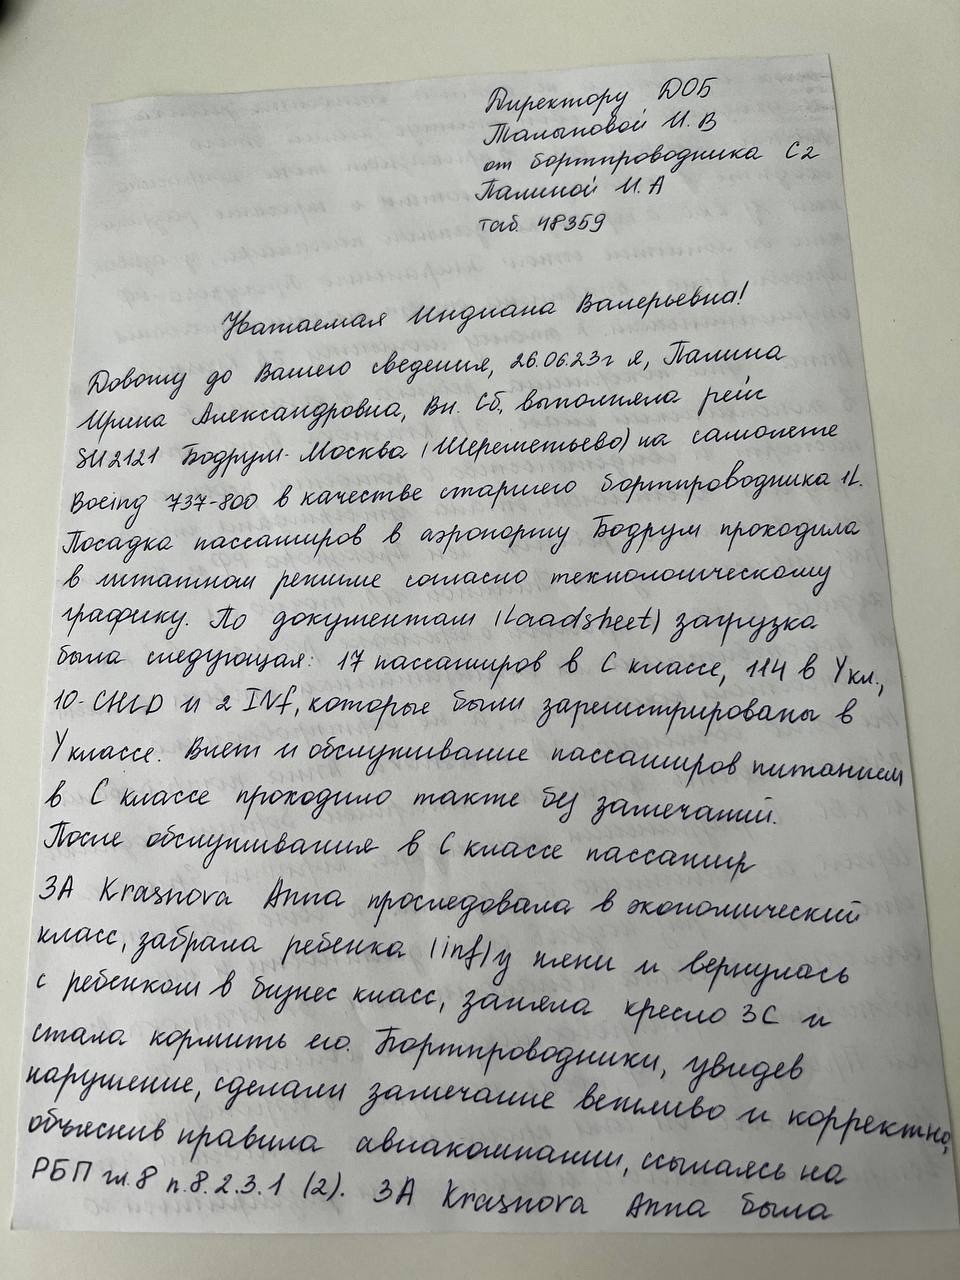 Директору ДОБ
Талыповой И.В
от бортпроводника С2
Палиной И.А
таб. 48359
Уважаемая Индиана Валерьевна!
Довожу до Вашего сведения, 26.06.23г я, Палина
Ирина Александровна, Вн. Сб, выполняла рейс
SU2121 Бодрум-Москва (Шереметьево) на самолете
Boeing 737-800 в качестве старшего бортпроводника 1L.
Посадка пассажиров в аэропорту Бодрум проходила
в штатном режиме согласно технологическому
графику. По документам (Loadsheet) загрузка
была следующая: 17 пассажиров в С классе, 114 в Y кл.,
10-CHLD и 2 INf, которые были зарегистрированы в
Y классе. Влет и обслуживание пассажиров питанием
в С классе проходило также без замечаний.
После обслуживания в С классе пассажир
3A Krasnova Anna проследовала в экономический
класс, забрала ребенка (inf) у няни и вернулась
с ребенком в бизнес класс, заняла кресло 3С и
стала кормить его. Бортпроводники, увидев
нарушение, сделали замечание вежливо и корректно,
объяснив правила авиакомпании, ссылаясь на
РБП гл.8 п.8.2.3.1 (2). 3A Krasnova Anna была